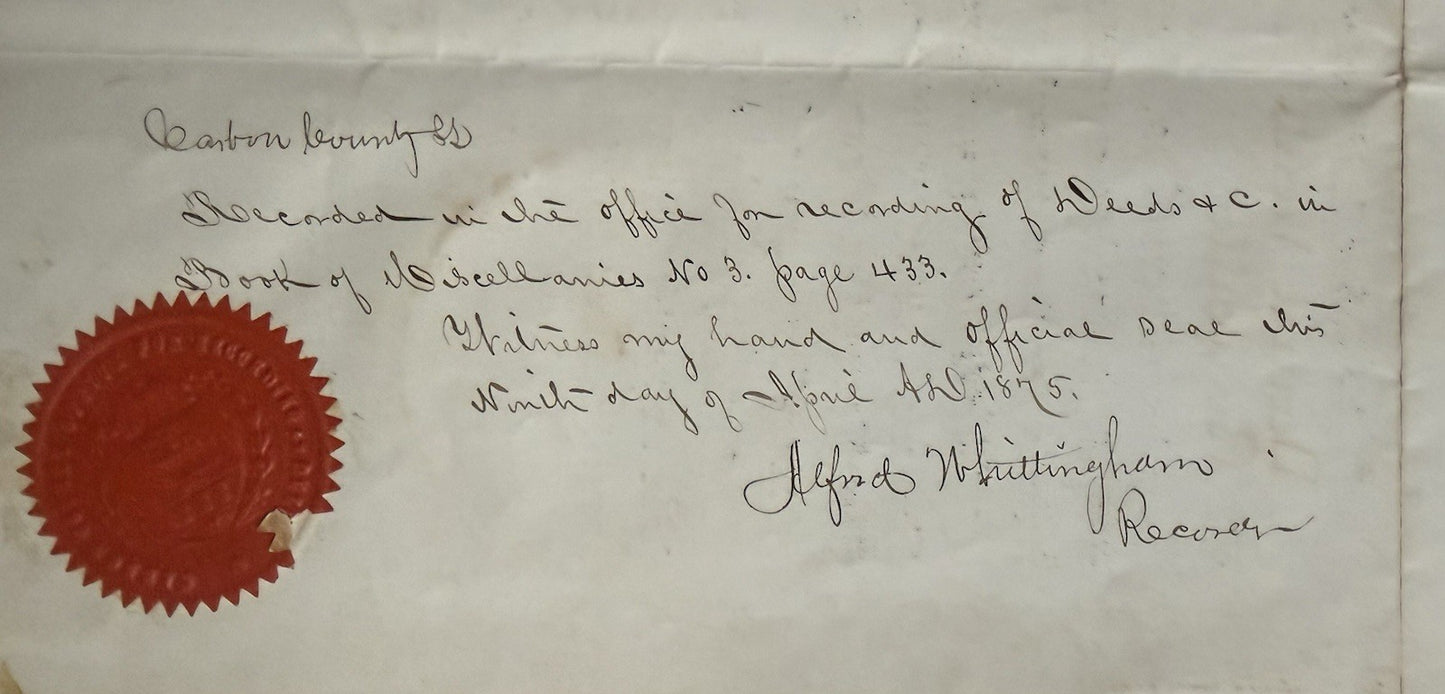 Carbon County SS
Recorded in the office for recording of Deeds & C. in
Book of Miscellanies No 3. page 433.
Witness my hand and official seal this
Ninth day of April AD. 1875.
Alfred Whittingham
Recorder